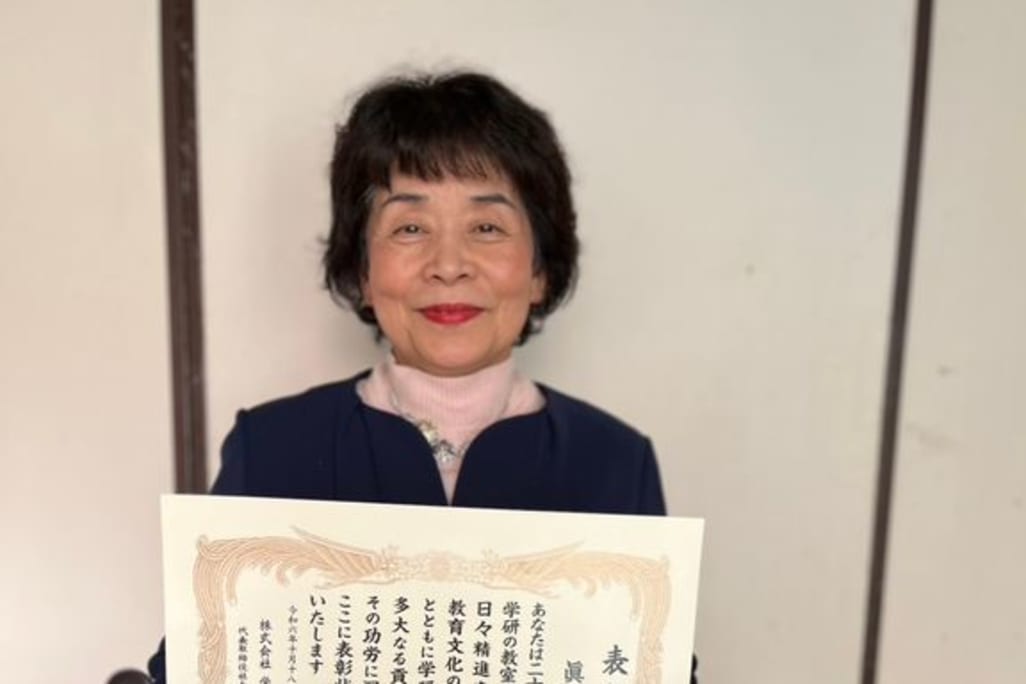 表
眞
あなたは二十
学研の教室
日々精進
教育文化の
とともに学研
多大なる貢
その功労に
ここに表彰状
いたします
令和六年十月十八
株式会社 学
代表取締役社